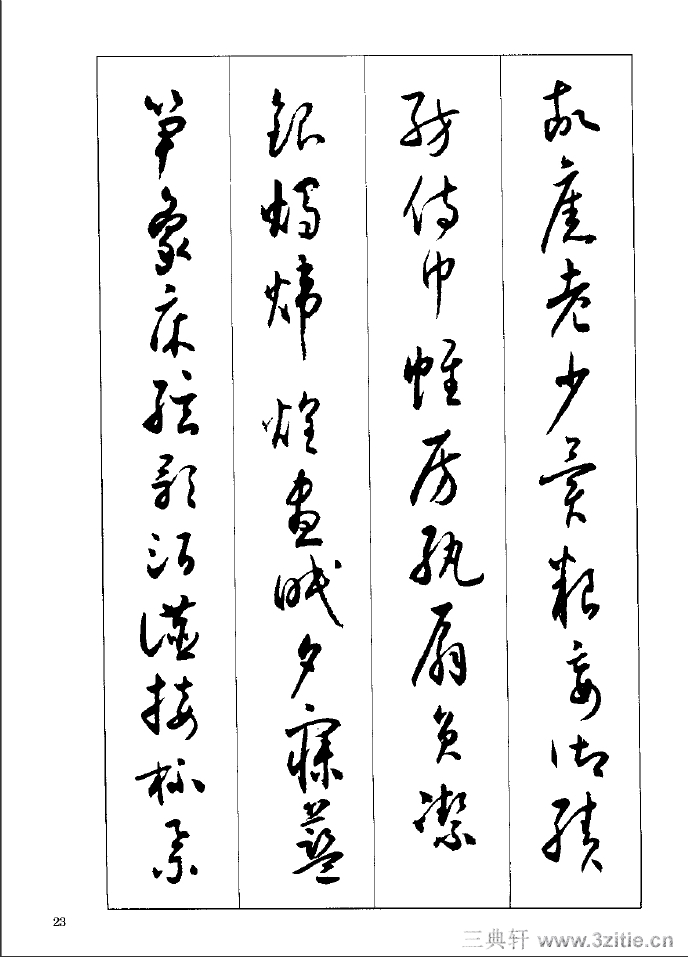 故舊老少異粮妾御績
紡侍巾帷房紈扇員潔
銀燭煒煌晝眠夕寐藍
笋象床絃歌酒讌接杯舉
23
三典轩 www.3zitie.cn